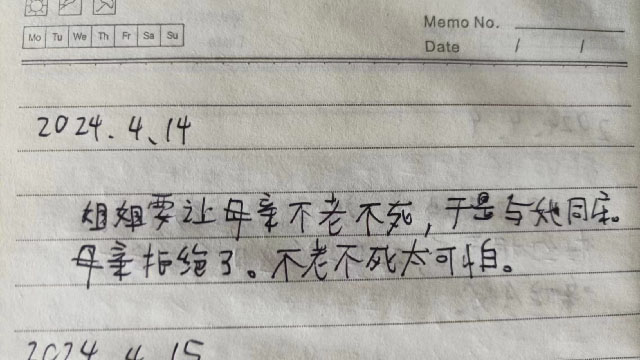 Memo No.
Mo Tu We Th Fr Sa Su
Date / /
2024.4、14
姐姐要让母亲不老不死，于是与她同床。
母亲拒绝了。不老不死太可怕。
2024.4.15